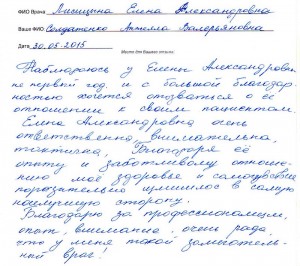 ФИО Врача Лисицына Елена Александровна
Ваше ФИО Солдатенко Анжелла Валорьяновна
Дата 30.05.2015
Место для Вашего отзыва:
Наблюдаюсь у Елены Александровны
не первый год, и с большой благодар-
ностью хочется отозваться о её
отношении к своим пациентам.
Елена Александровна очень
ответственна, внимательна,
тактична. Благодаря её
опыту и заботливому отноше-
нию моё здоровье и самочувствие
поразительно изменилось в самую
наилучшую сторону.
Благодарю за профессионализм,
опыт, внимание, очень рада,
что у меня такой замечатель-
ный врач!